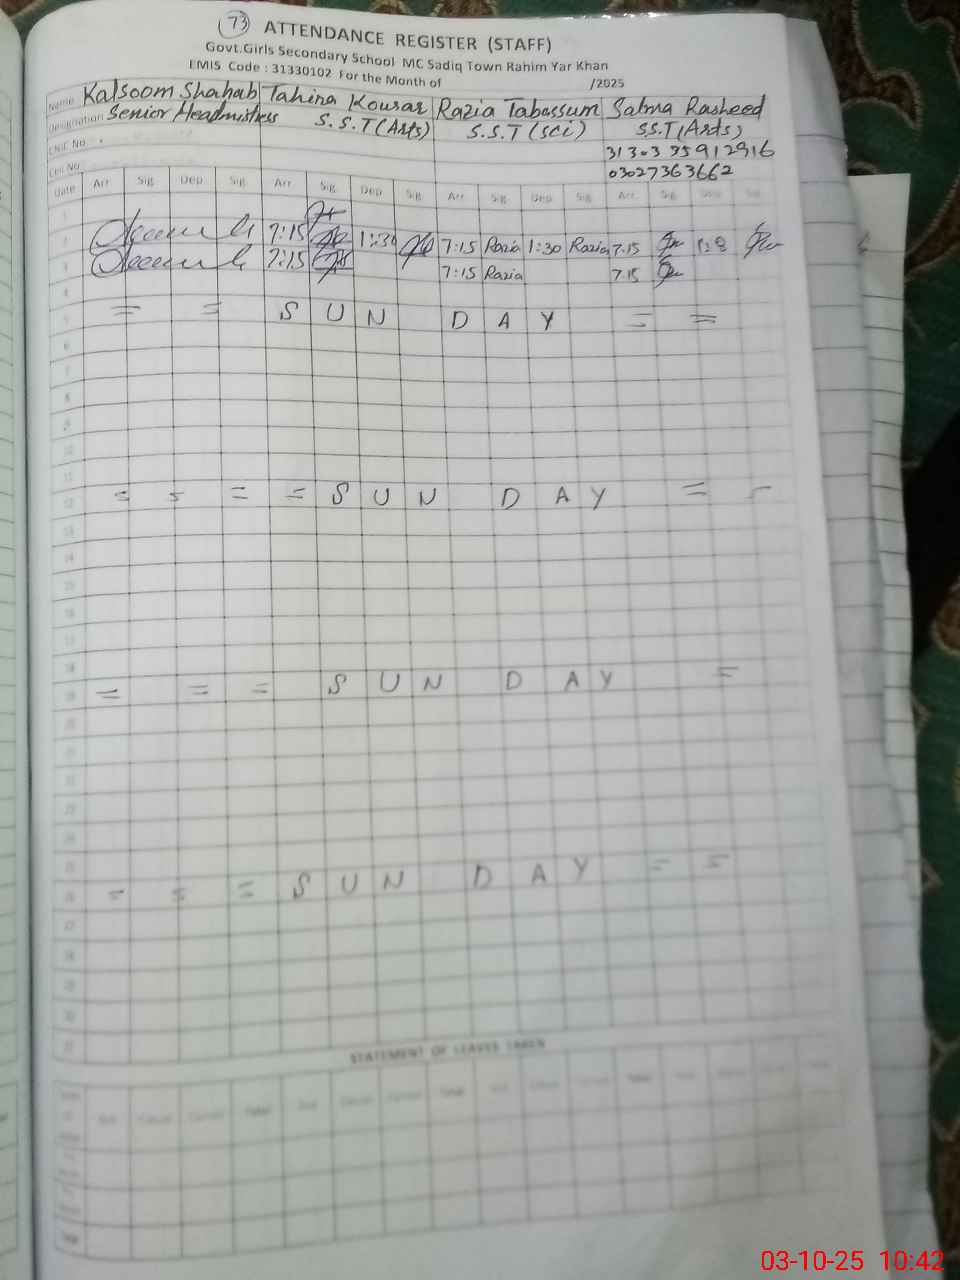 73 ATTENDANCE REGISTER (STAFF)
Govt.Girls Secondary School MC Sadiq Town Rahim Yar Khan
EMIS Code : 31330102 For the Month of /2025
Name Kalsoom Shahab Tahira Kousar Razia Tabassum Salma Rasheed
Designation Senior Headmistress S.S.T (Arts) S.S.T (Sci) S.S.T (Arts)
CNIC No.
Cell No.
03027363662
Date Arr. Sig. Dep Sig. Arr. Sig. Dep Sig. Arr. Sig. Dep Sig. Arr. Sig. Sig.
1
7:15 1:30 7:15 Razia 1:30 Razia 7:15
7:15 7:15 Razia 7:15
4
5 = = S U N D A Y = =
6
7
8
9
10
11
12 = = = = S U N D A Y =
13
14
15
16
17
18
19 = = = S U N D A Y =
20
21
22
23
24
25
26 = = = S U N D A Y = =
27
28
29
30
31
STATEMENT OF LEAVES TAKEN
Total
03-10-25 10:42